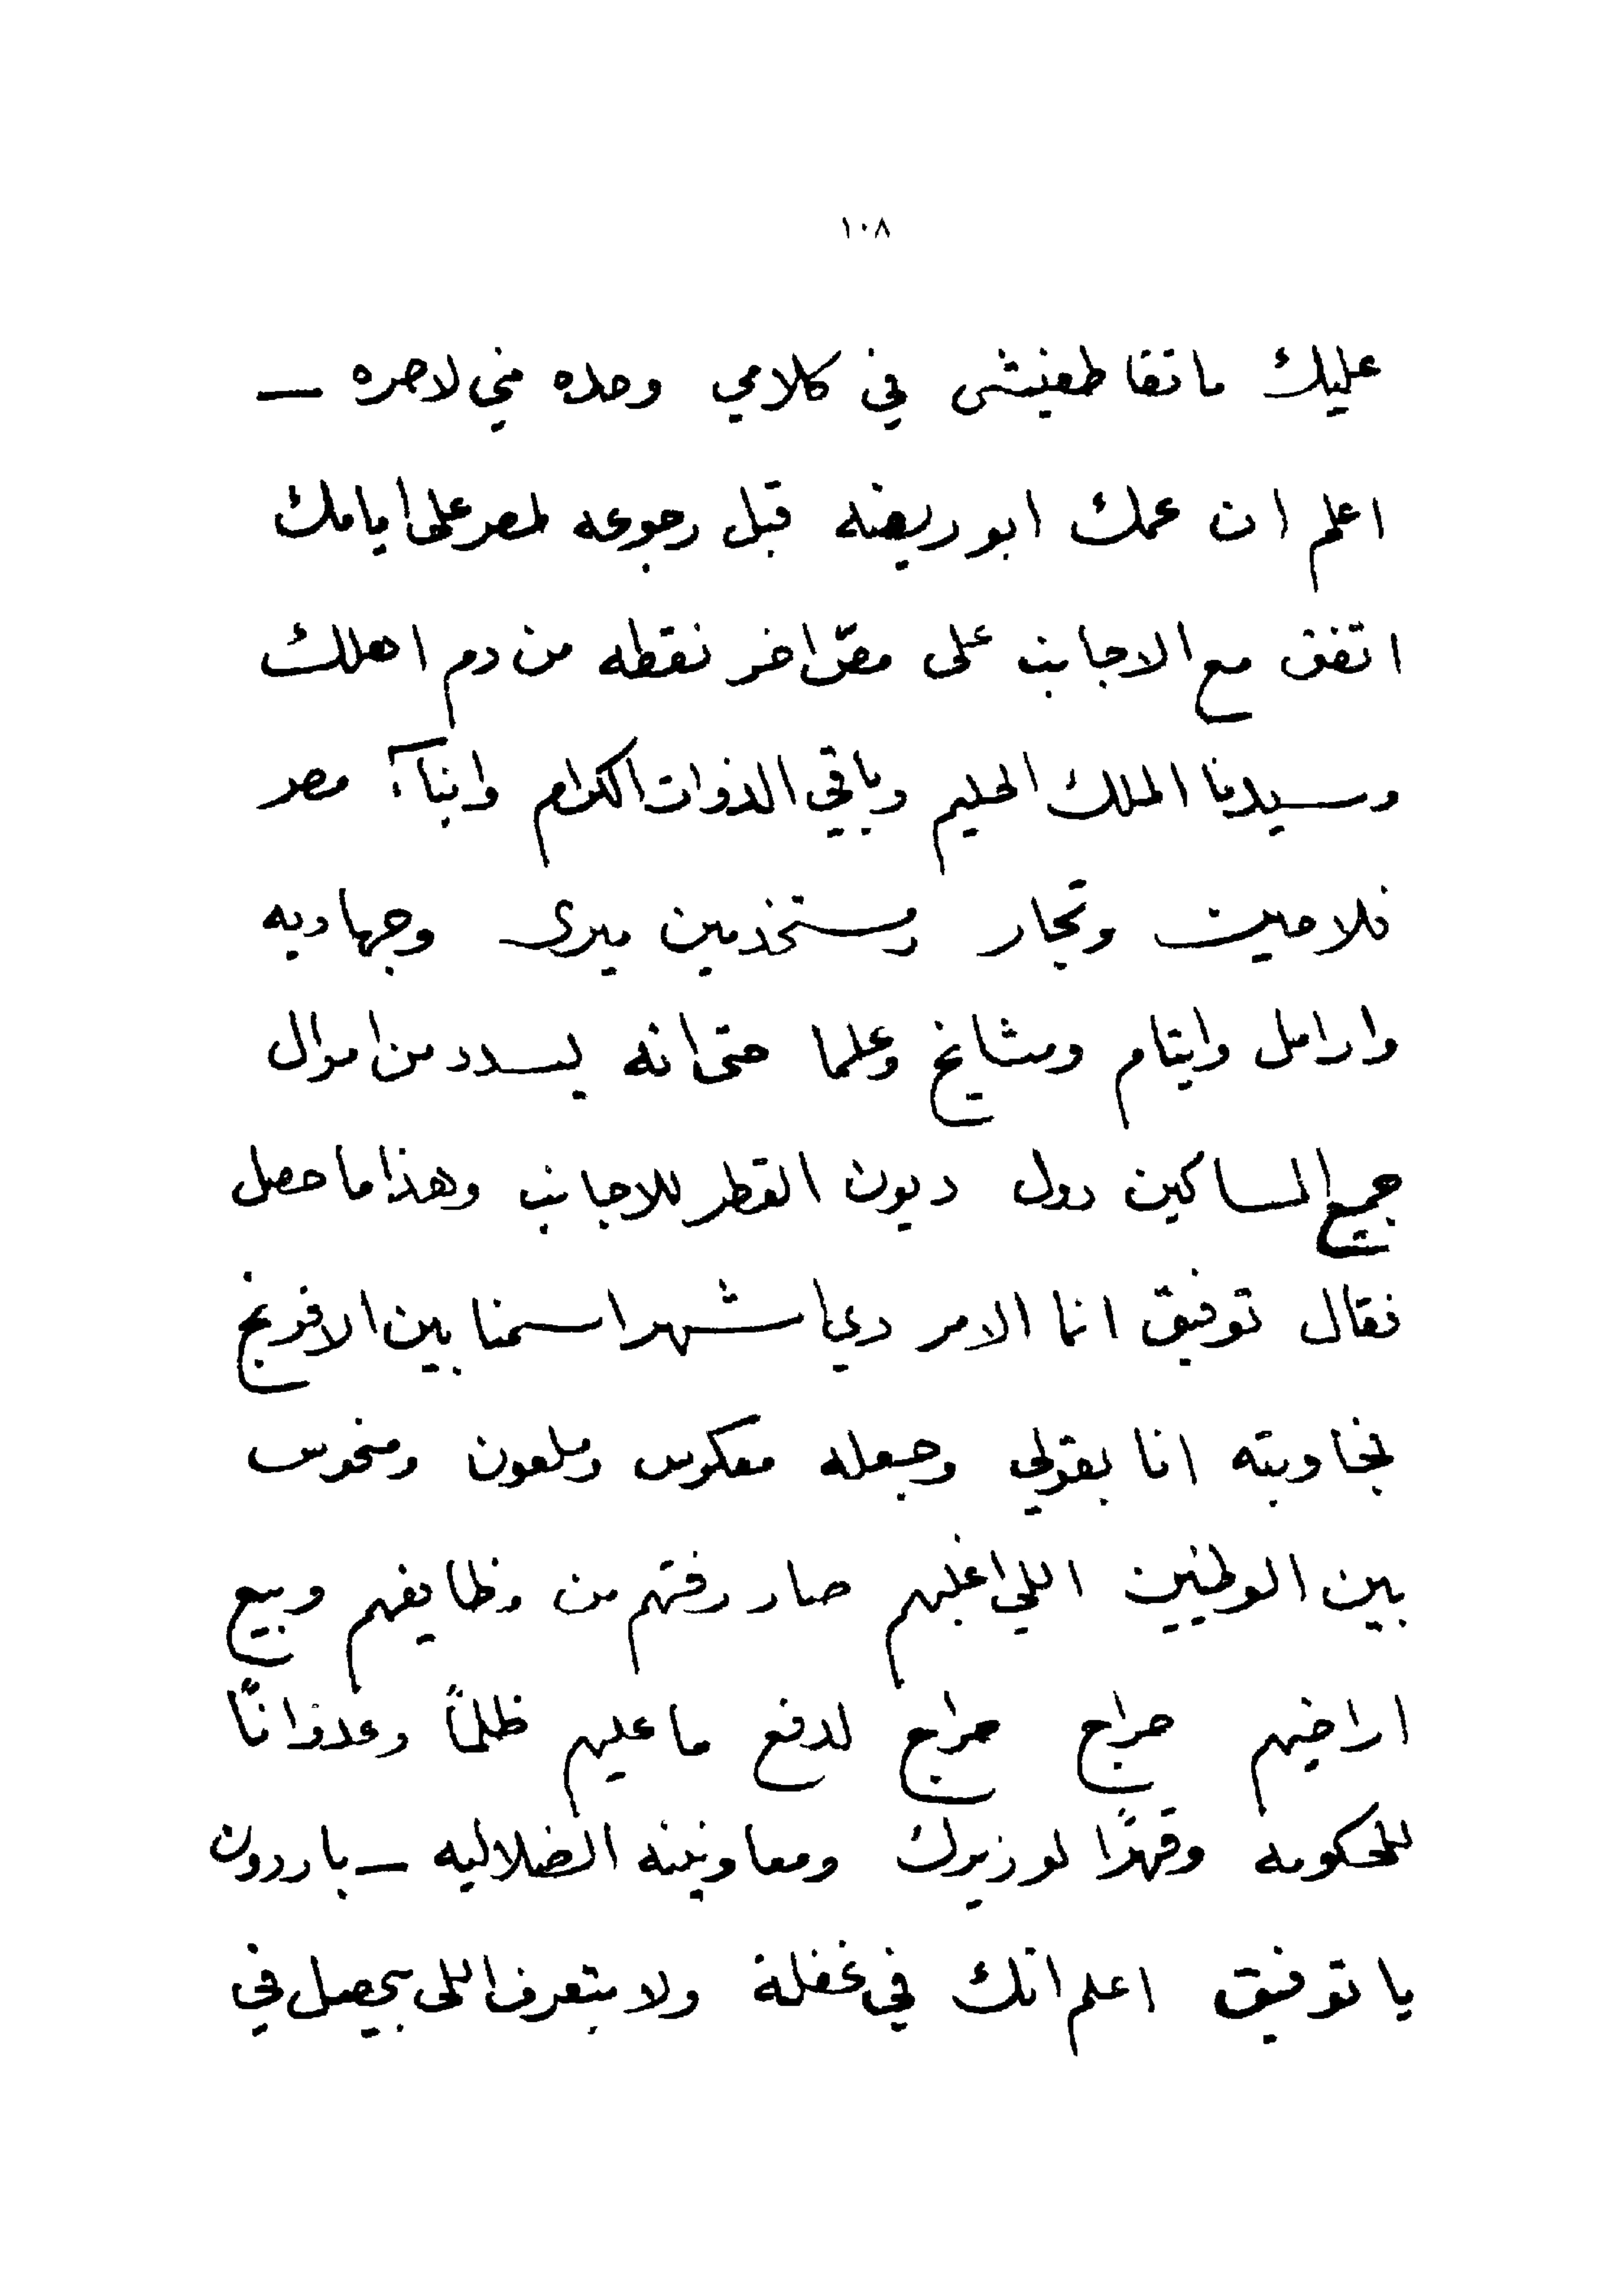 ١٠٨
عليك ماتقاطعنيش في كلامي وحده مني لاحره —
اعلم ان عمك ابو ريضه قبل رجوعه لمصر على ايامك
اتفق مع الاجانب على مصّ اخر نقطه من دم اهلك
وسيدنا الملك الحليم وباقي الذوات الكرام وابنآء مصر
فلاحين وتجار ومستخدمين ميرى وجهاديه
وارامل وايتام ومشايخ وعلما حتى انه يسدد من اموال
جميع المساكين دول ديون القطر للاجانب وهذا ما حصل
فقال توفيق انما الامر دي اشهر اسمنا بين الافرنج
فجاوبته انا بقولي وجعله معكوس وملعون ومنحوس
بين الوطنيين اللي اغلبهم صار رفتهم من وظايفهم وبيع
اراضيهم حراج حراج لدفع ما عليهم ظلماً وعدواناً
للحكومه وقهرًا لوزيرك ومعاونينه الضلاليه — باردون
يا توفيق اعلم انك في غفلة ولا بتعرف اللى بيحصل في